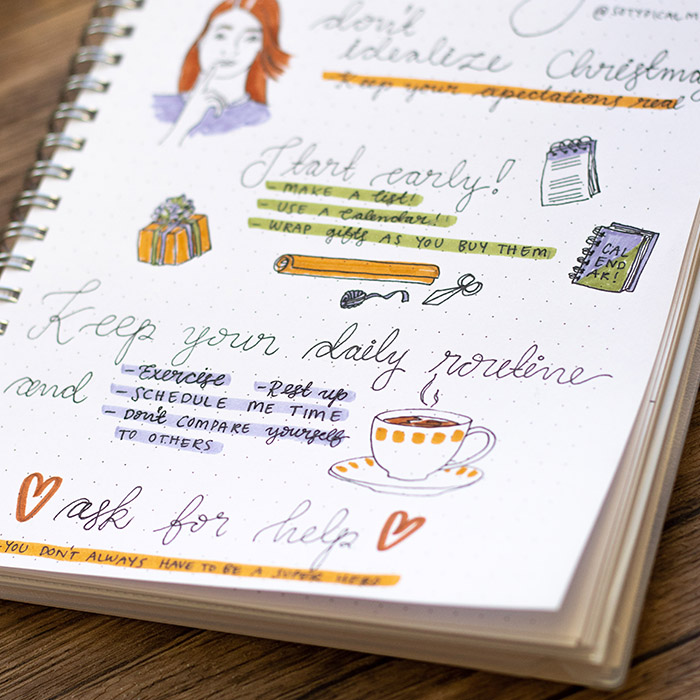 @sotypical.m
don't
idealize Christma
Keep your expectations real
Start early!
- MAKE A list!
- USE A calendar!!
- WRAP gifts AS YOU BUY THEM
CAL
END
AR!
Keep your daily routine
and
- Exercise - Rest up
- SCHEDULE ME TIME
- DON'T COMPARE yourself
TO OTHERS
ask for help
YOU DON'T ALWAYS HAVE TO BE A SUPER HERO